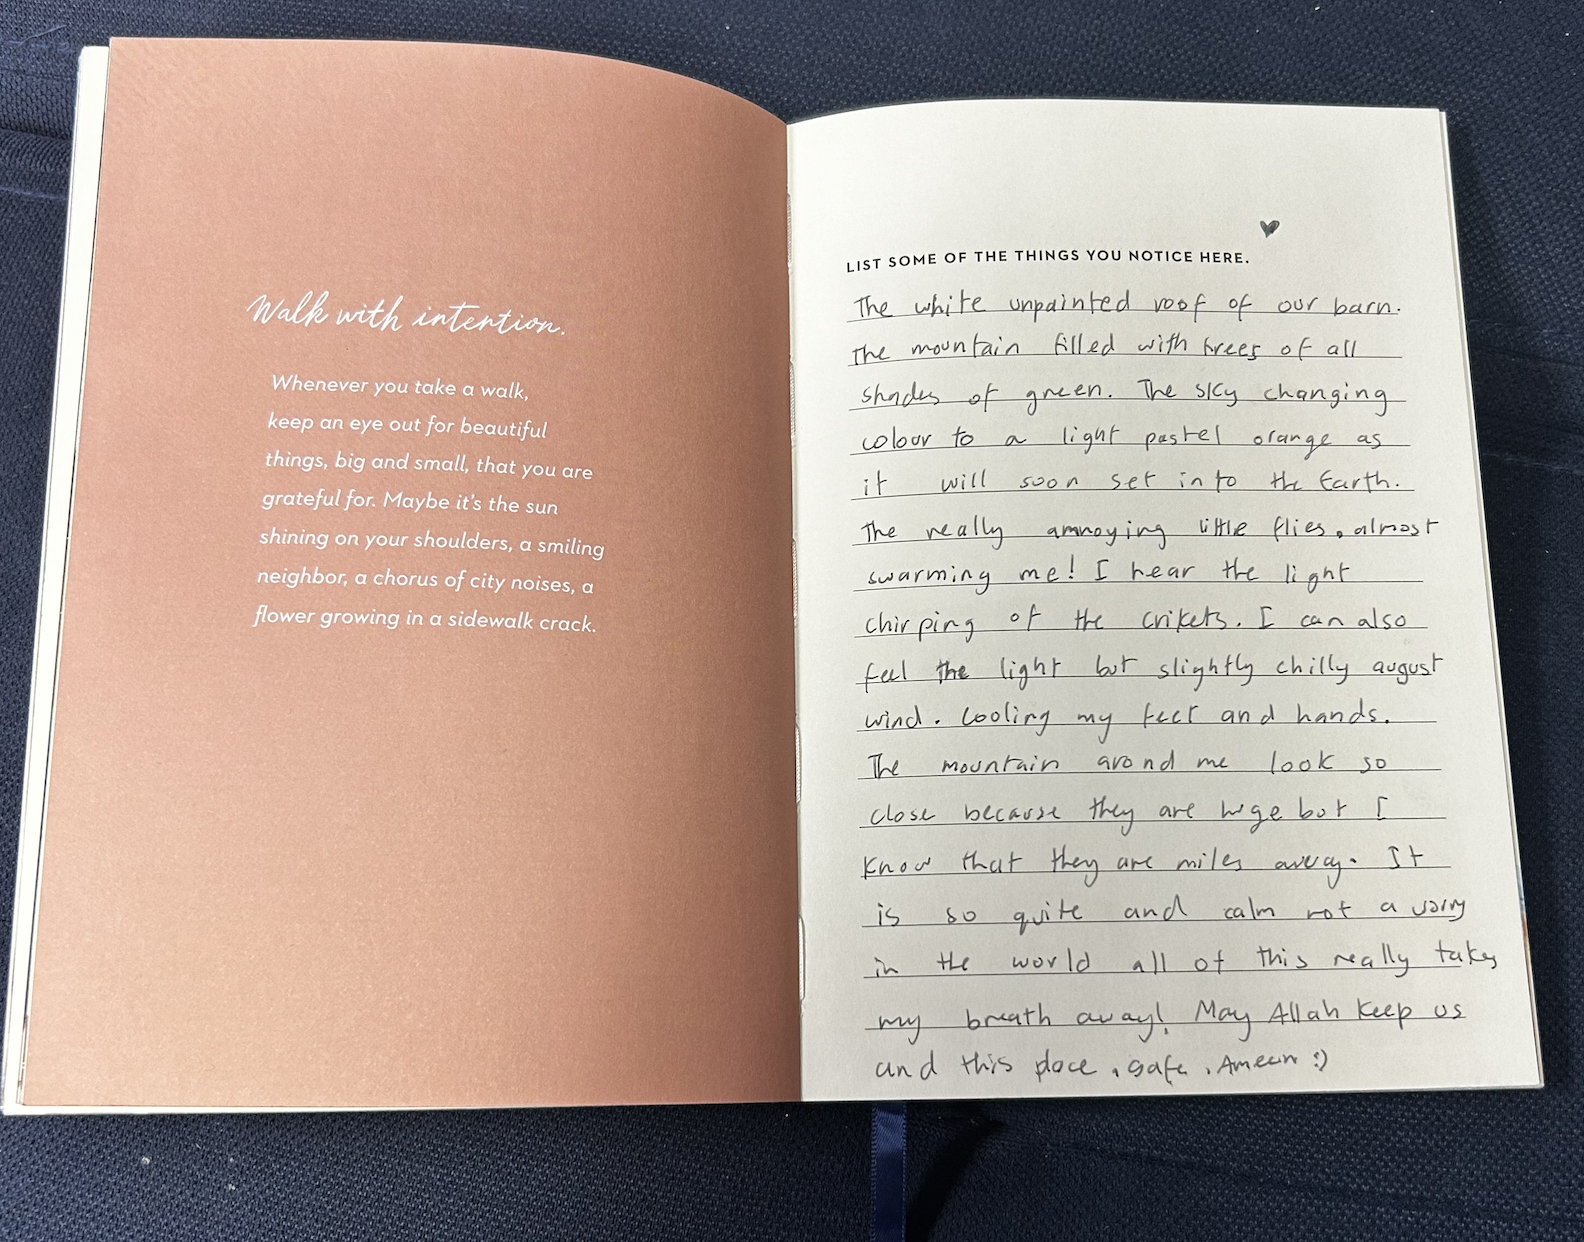 Walk with intention.
Whenever you take a walk,
keep an eye out for beautiful
things, big and small, that you are
grateful for. Maybe it's the sun
shining on your shoulders, a smiling
neighbor, a chorus of city noises, a
flower growing in a sidewalk crack.
LIST SOME OF THE THINGS YOU NOTICE HERE.
The white unpainted roof of our barn.
The mountain filled with trees of all
shades of green. The sky changing
colour to a light pastel orange as
it will soon set into the Earth.
The really annoying little flies, almost
swarming me! I hear the light
chirping of the crikets. I can also
feel the light but slightly chilly august
wind. Cooling my feet and hands.
The mountain arond me look so
close because they are huge but I
know that they are miles away. It
is so quite and calm not a worry
in the world all of this really takes
my breath away! May Allah keep us
and this place, safe. Ameen :)